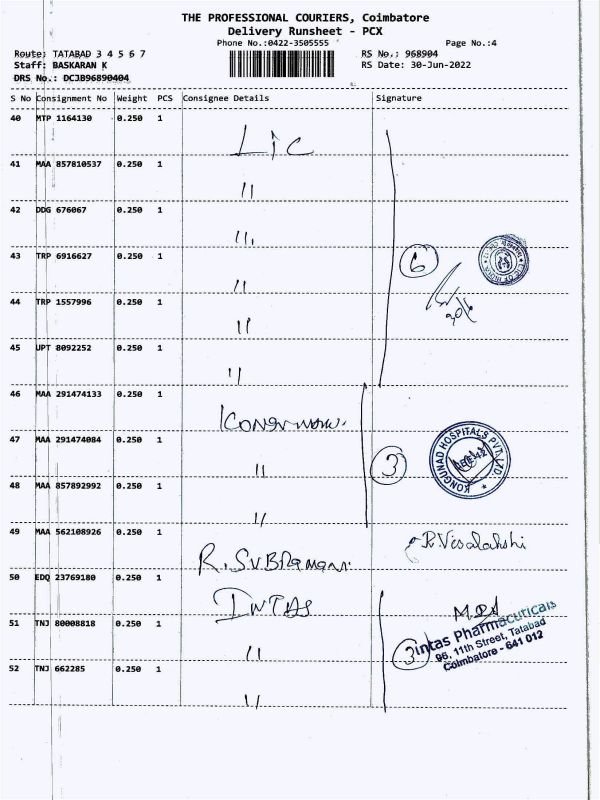 THE PROFESSIONAL COURIERS, Coimbatore
Delivery Runsheet - PCX
Phone No.:0422-3505555 Page No.:4
Route: TATABAD 3 4 5 6 7 RS No.: 968904
Staff: BASKARAN K RS Date: 30-Jun-2022
DRS No.: DCJB96890404
S No Consignment No Weight PCS Consignee Details Signature
40 MTP 1164130 0.250 1
Lic
41 MAA 857810537 0.250 1
"
42 DDG 676067 0.250 1
"
43 TRP 6916627 0.250 1
" 6
44 TRP 1557996 0.250 1
"
45 UPT 8092252 0.250 1
"
46 MAA 291474133 0.250 1
47 MAA 291474084 0.250 1
" 3
KONGUNAD HOSPITALS PVT. LTD.
48 MAA 857892992 0.250 1
"
49 MAA 562108926 0.250 1
R. SUBRAmani R.Visalakshi
50 EDQ 23769180 0.250 1
INTAS
51 TNJ 80008818 0.250 1
" 3
intas Pharmaceuticals
96, 11th Street, Tatabad
Coimbatore - 641 012
52 TNJ 662285 0.250 1
"